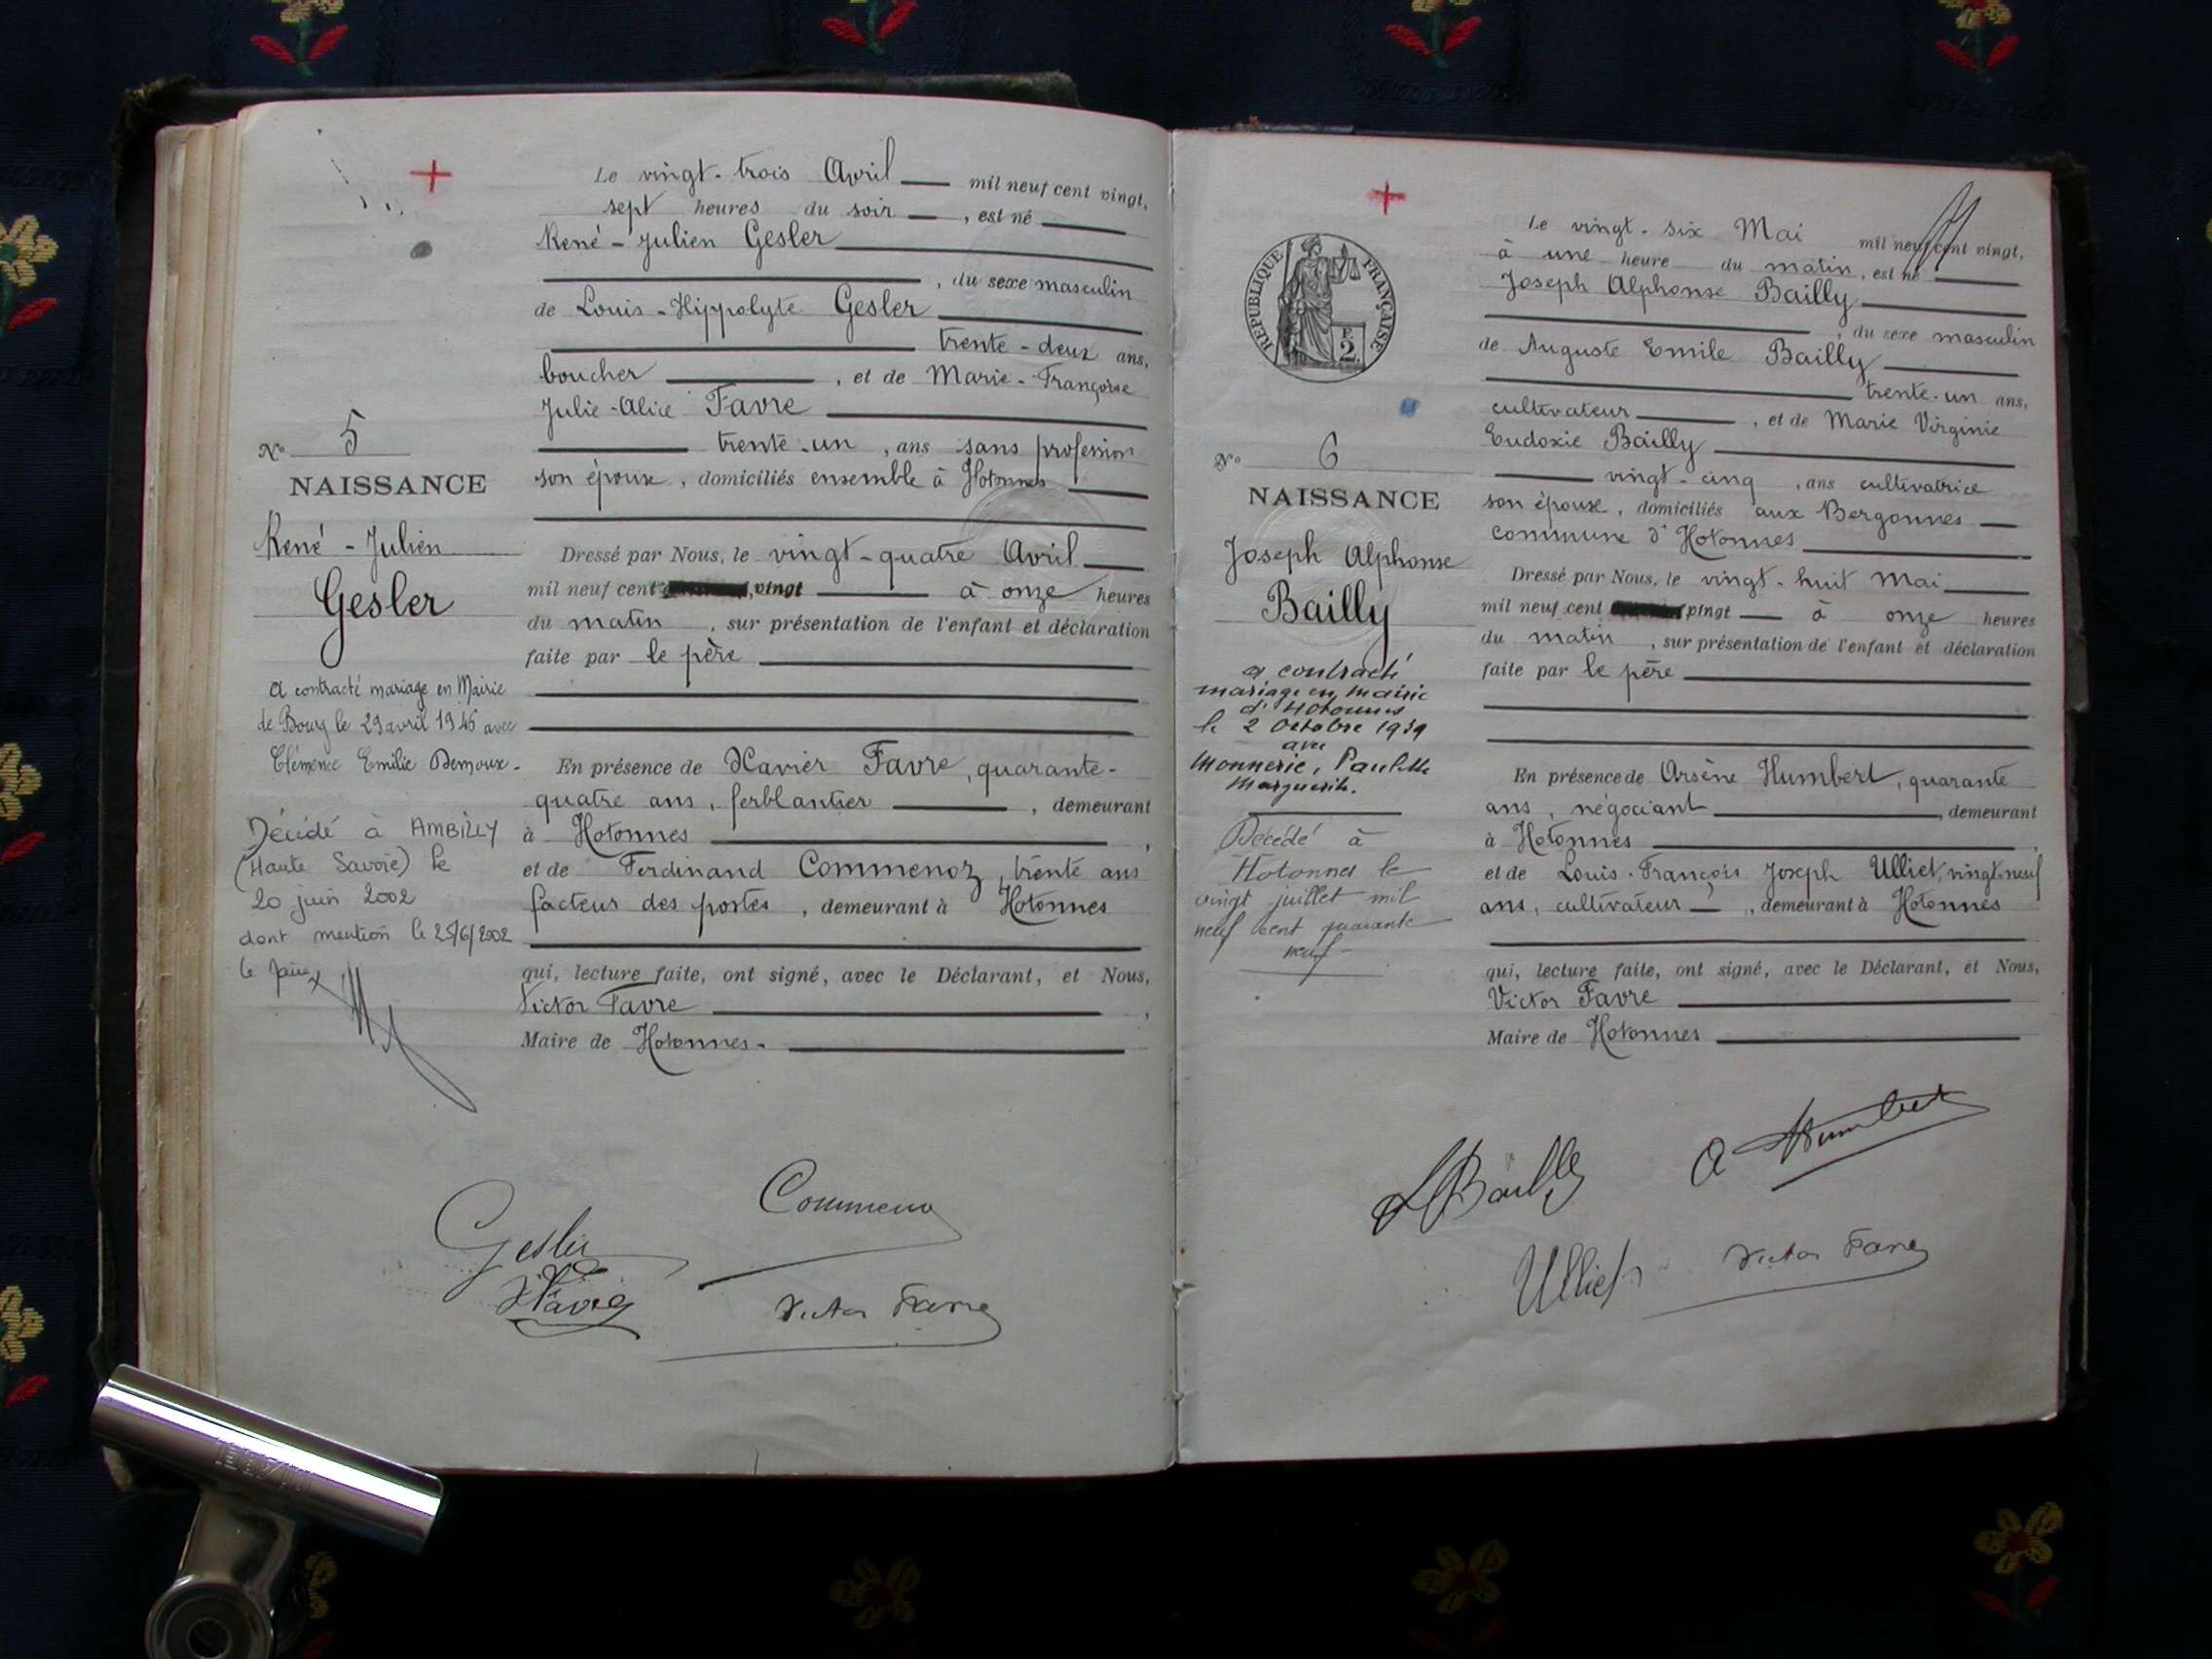 Le vingt-trois Avril mil neuf cent vingt,
sept heures du soir, est né
René-Julien Gesler
, du sexe masculin
de Louis-Hippolyte Gesler
trente-deux ans,
boucher, et de Marie-Françoise
Julie-Alice Favre
trente-un, ans sans profession
son épouse, domiciliés ensemble à Hotonnes
Dressé par Nous, le vingt-quatre Avril
mil neuf cent vingt à onze heures
du matin, sur présentation de l'enfant et déclaration
faite par le père
En présence de Xavier Favre, quarante-
quatre ans, ferblantier, demeurant
à Hotonnes,
et de Ferdinand Commenoz, trente ans
facteur des postes, demeurant à Hotonnes
qui, lecture faite, ont signé, avec le Déclarant, et Nous,
Victor Favre,
Maire de Hotonnes.
No 5
NAISSANCE
René-Julien
Gesler
A contracté mariage en Mairie
de Bourg le 29 avril 1946 avec
Clémence Emilie
Décédé à AMBILLY
(Haute Savoie) le
20 juin 2002
dont mention le 25/6/2002
le
Gesler
Commenoz
Favre
Victor Favre
REPUBLIQUE FRANÇAISE
2
No 6
NAISSANCE
Joseph Alphonse
Bailly
a contracté
mariage en mairie
d'Hotonnes
le 2 Octobre 1939
avec
Monnerie, Paulette
Marguerite.
Décédé à
Hotonnes le
vingt juillet mil
neuf cent quarante
neuf
Le vingt-six Mai mil neuf cent vingt,
à une heure du matin, est né
Joseph Alphonse Bailly
, du sexe masculin
de Auguste Emile Bailly
trente-un ans,
cultivateur, et de Marie Virginie
Eudoxie Bailly
vingt-cinq, ans cultivatrice
son épouse, domiciliés aux Bergonnes
commune d'Hotonnes
Dressé par Nous, le vingt-huit Mai
mil neuf cent vingt à onze heures
du matin, sur présentation de l'enfant et déclaration
faite par le père
En présence de Arsène Humbert, quarante
ans, négociant, demeurant
à Hotonnes,
et de Louis-François Joseph Ulliet, vingt-neuf
ans, cultivateur, demeurant à Hotonnes
qui, lecture faite, ont signé, avec le Déclarant, et Nous,
Victor Favre
Maire de Hotonnes
Bailly
A Humbert
Ulliet
Victor Favre